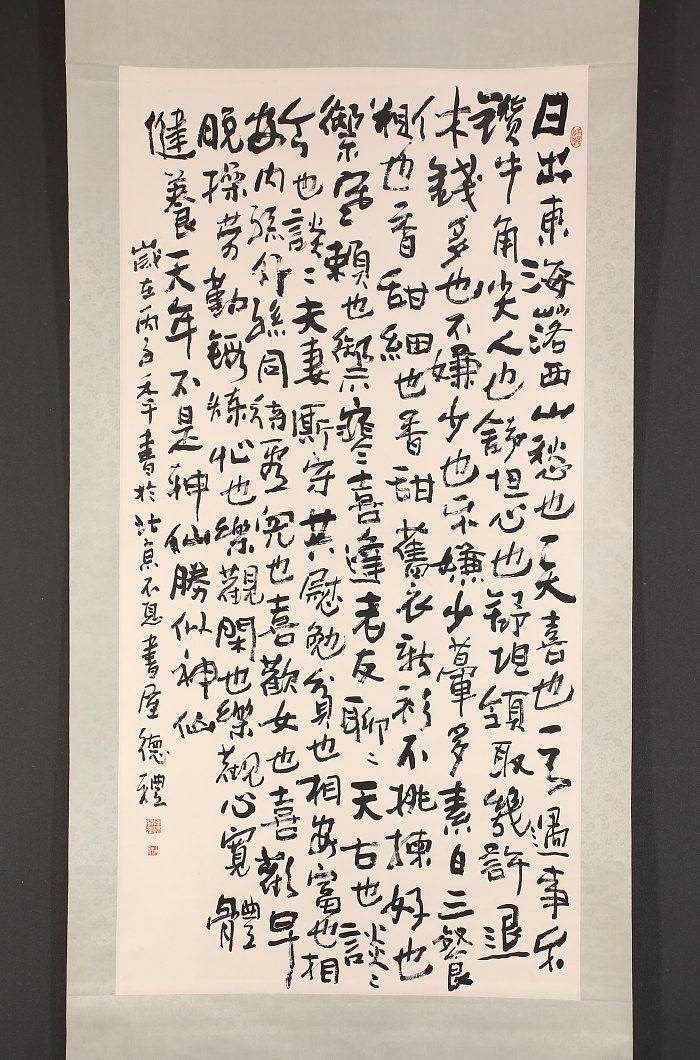 日出東海落西山愁也一天喜也一天遇事不
鑽牛角尖人也舒坦心也舒坦領取幾許退
休錢多也不嫌少也不嫌少葷多素日三餐
粗也香甜細也香甜舊衣新衫不挑揀好也
禦寒賴也禦寒喜逢老友聊々天古也談々
今也談々夫妻廝守共慰勉貧也相安富也相
安內孫外孫同待看兒也喜歡女也喜歡早
晚操勞勤鍛煉忙也樂觀閑也樂觀心寬體
健養天年不是神仙勝似神仙
歲在丙書於北京不息書屋德禮